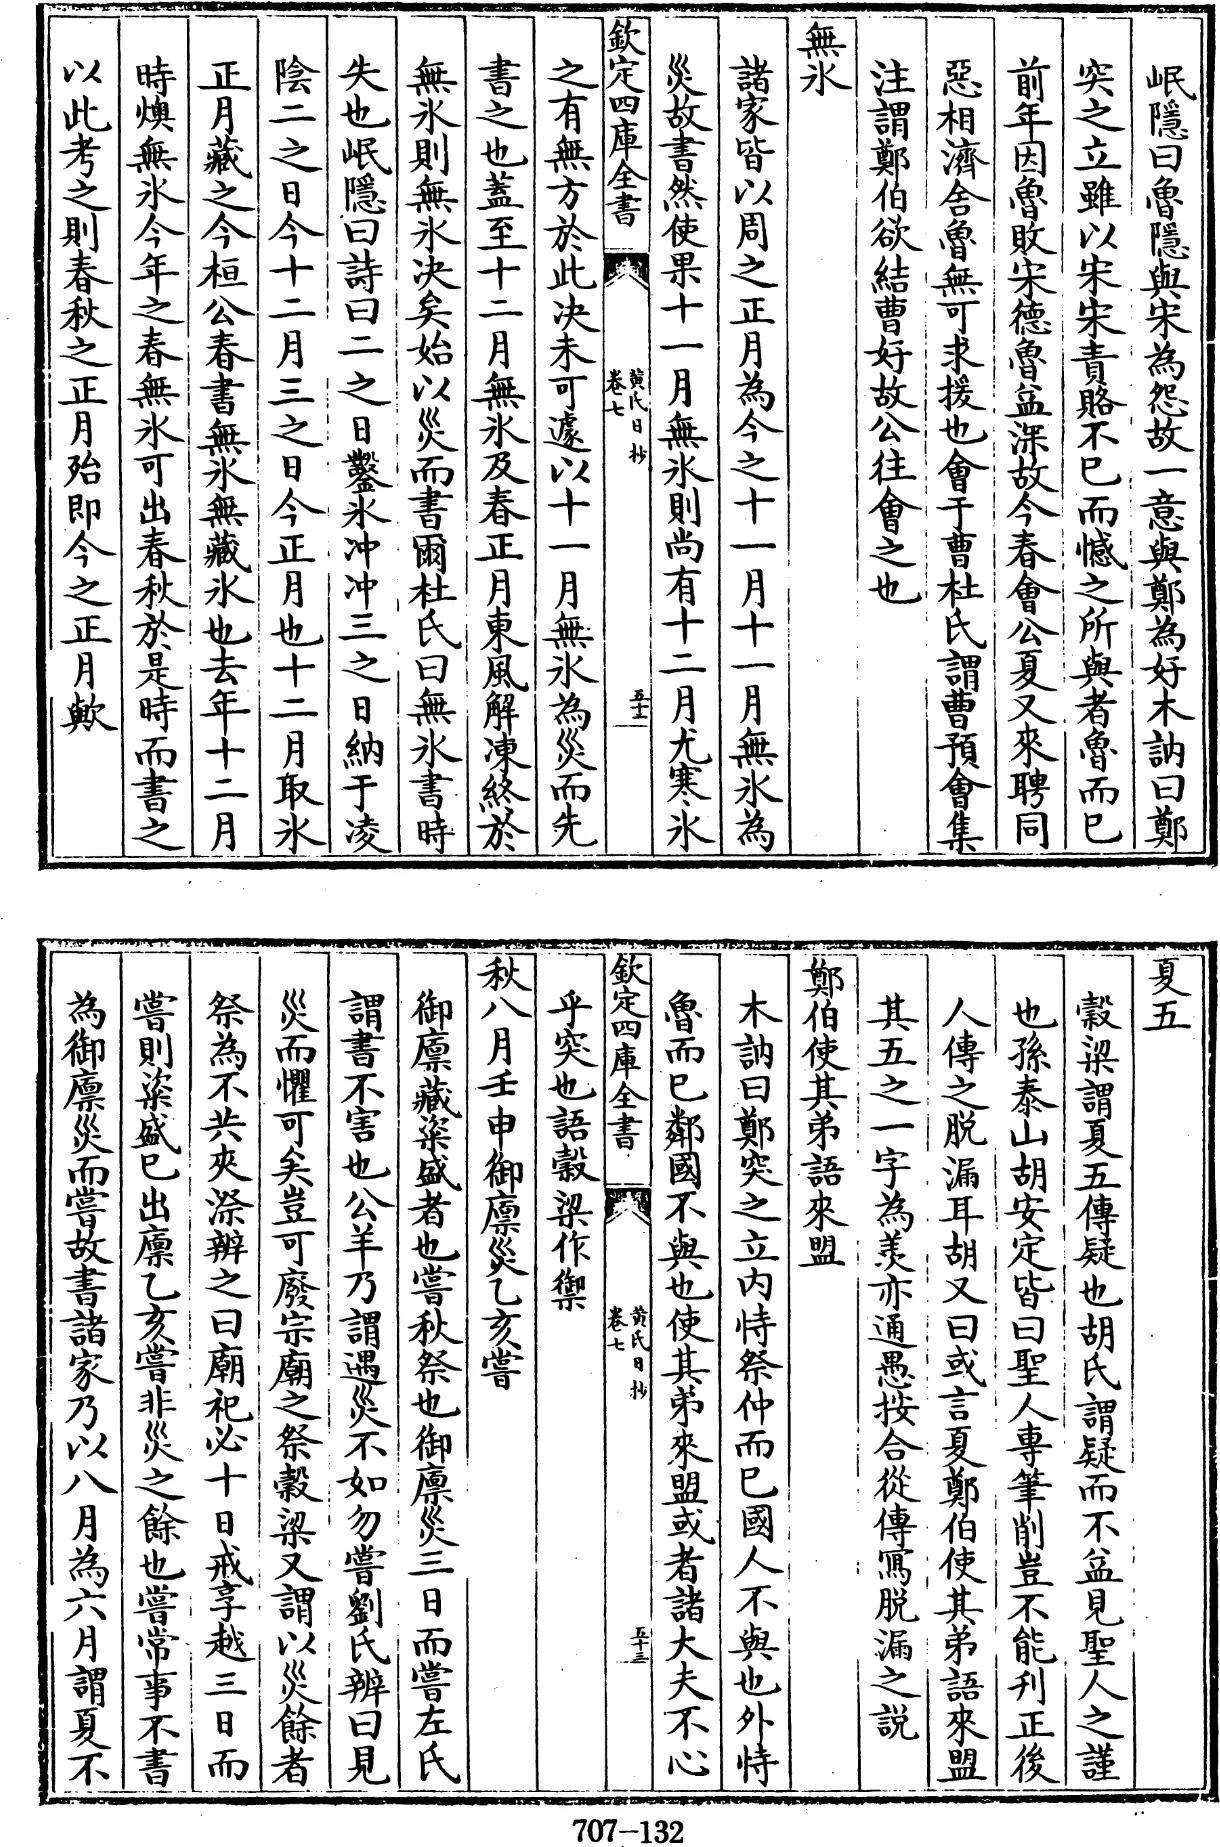 岷隱曰魯隱與宋為怨故一意與鄭為好木訥曰鄭
突之立雖以宋宋責賂不已而憾之所與者魯而已
前年因魯敗宋德魯益深故今春會公夏又來聘同
惡相濟舍魯無可求援也會于曹杜氏謂曹預會集
注謂鄭伯欲結曹好故公往會之也
無氷
諸家皆以周之正月為今之十一月十一月無氷為
災故書然使果十一月無氷則尚有十二月尤寒氷
欽定四庫全書
黄氏日抄
卷七
五十二
之有無方於此决未可遽以十一月無氷為災而先
書之也蓋至十二月無氷及春正月東風解凍終於
無氷則無氷决矣始以災而書爾杜氏曰無氷書時
失也岷隱曰詩曰二之日鑿氷冲冲三之日納于凌
陰二之日今十二月三之日今正月也十二月取氷
正月藏之今桓公春書無氷無藏氷也去年十二月
時燠無氷今年之春無氷可出春秋於是時而書之
以此考之則春秋之正月殆即今之正月歟
夏五
穀梁謂夏五傳疑也胡氏謂疑而不益見聖人之謹
也孫泰山胡安定皆曰聖人專筆削豈不能刋正後
人傳之脱漏耳胡又曰或言夏鄭伯使其弟語來盟
其五之一字為羡亦通愚按合從傳寫脱漏之説
鄭伯使其弟語來盟
木訥曰鄭突之立内恃祭仲而已國人不與也外恃
魯而已鄰國不與也使其弟來盟或者諸大夫不心
欽定四庫全書
黄氏日抄
卷七
五十三
乎突也語穀梁作禦
秋八月壬申御廪災乙亥嘗
御廪藏粢盛者也嘗秋祭也御廪災三日而嘗左氏
謂書不害也公羊乃謂遇災不如勿嘗劉氏辨曰見
災而懼可矣豈可廢宗廟之祭穀梁又謂以災餘者
祭為不共夾漈辨之曰廟祀必十日戒享越三日而
嘗則粢盛已出廪乙亥嘗非災之餘也嘗常事不書
為御廪災而嘗故書諸家乃以八月為六月謂夏不
707-132